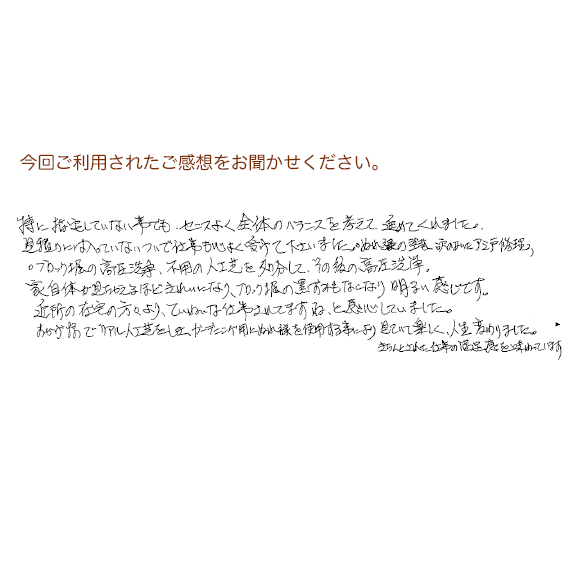 今回ご利用されたご感想をお聞かせください。
特に指定していない事でも、センスよく全体のバランスを考えて進めてくれました。
見積りに入っていないついで仕事も心よく受けて下さいました。(ぬれ縁の塗装、アミ戸修理)
○ブロック塀の高圧洗浄、不用の人工芝を処分して、その後の高圧洗浄。
家自体が見ちがえるほどきれいになり、ブロック塀の黒ずみもなくなり明るい感じです。
近所の在宅の方々より、ていねいな仕事されてますね、と感心していました。
おかげ様でリアル人工芝をしき、ガーデニング用にぬれ縁を使用する事により見ていて楽しく、人生変わりました。
きちんとされた仕事の満足感を味わっています